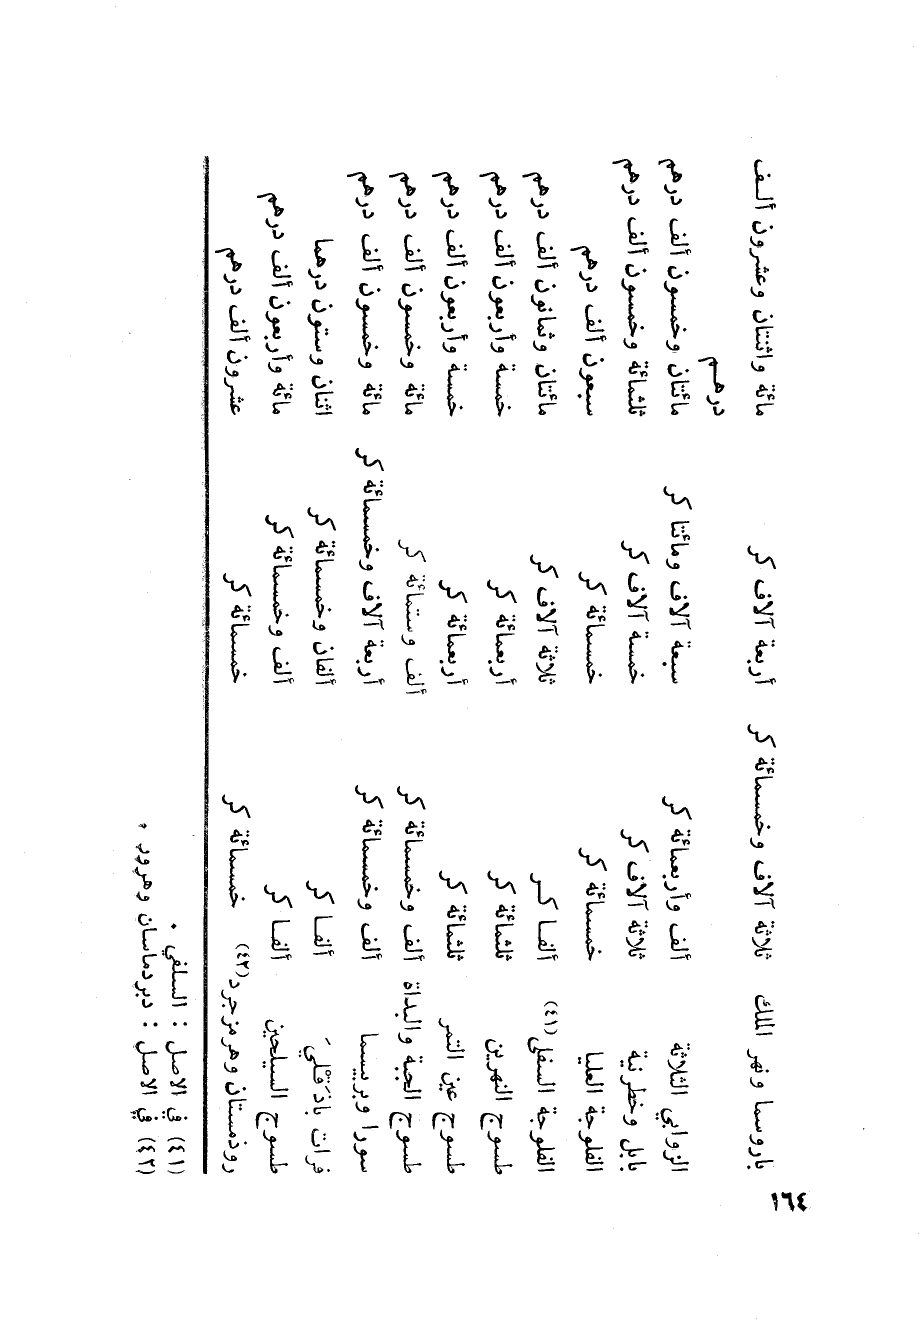 ١٦٤
باروسما ونهر الملك ثلاثة آلاف وخمسمائة كر أربعة آلاف كر مائة واثنتان وعشرون ألـف
درهـم
الزوابي الثلاثة ألف وأربعمائة كر سبعة آلاف ومائتا كر مائتان وخمسون ألف درهم
بابل وخطرنية ثلاثة آلاف كر خمسة آلاف كر ثلثمائة وخمسون ألف درهم
الفلوجة العليا خمسمائة كر خمسمائة كر سبعون ألف درهم
الفلوجة السفلى (٤١) ألفـا كـر ثلاثة آلاف كر مائتان وثمانون ألف درهم
طسوج النهرين ثلثمائة كر أربعمائة كر خمسة وأربعون ألف درهم
طسوج عين التمر ثلثمائة كر أربعمائة كر خمسة وأربعون ألف درهم
طسوج الجبة والبداة ألف وخمسمائة كر ألف وستمائة كر مائة وخمسون ألف درهم
سورا وبربيسما ألف وخمسمائة كر أربعة آلاف وخمسمائة كر مائة وخمسون ألف درهم
فرات باذقليَ ألفـا كر ألفان وخمسمائة كر اثنان وستون درهما
طسوج السيلحين ألفـا كر ألف وخمسمائة كر مائة وأربعون ألف درهم
روذمستان وهرمزجرد (٤٢) خمسمائة كر خمسمائة كر عشرون ألف درهم
(٤١) في الاصل : السلفي .
(٤٢) في الاصل : ديردماسان وهرود .